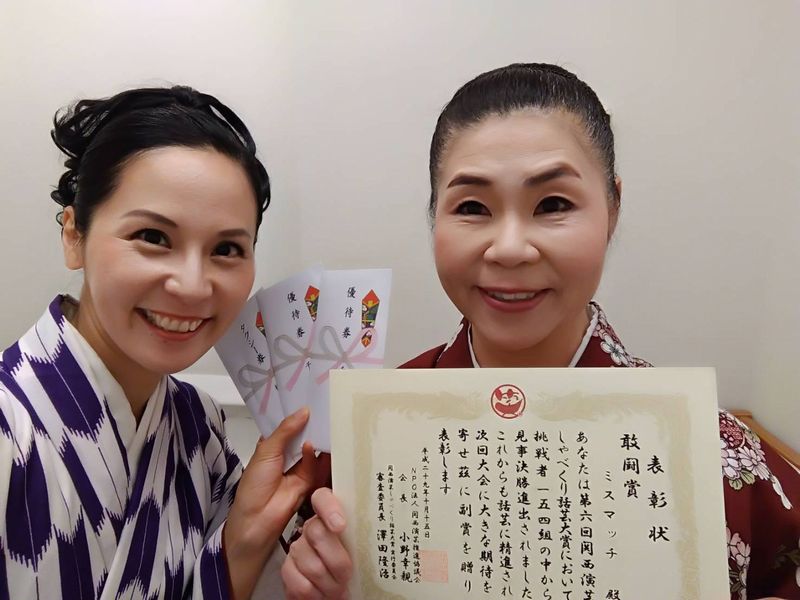 タクシー券
優待券
優待券
表彰状
敢闘賞
ミスマッチ 殿
あなたは第六回関西演芸
しゃべくり話芸大賞において
挑戦者一五四組の中から
見事決勝進出されました
これからも話芸に精進され
次回大会に大きな期待を
寄せ茲に副賞を贈り
表彰します
平成二十九年十月十五日
NPO法人関西演芸推進協議会
会長 小野幸親
審査委員長 澤田隆治